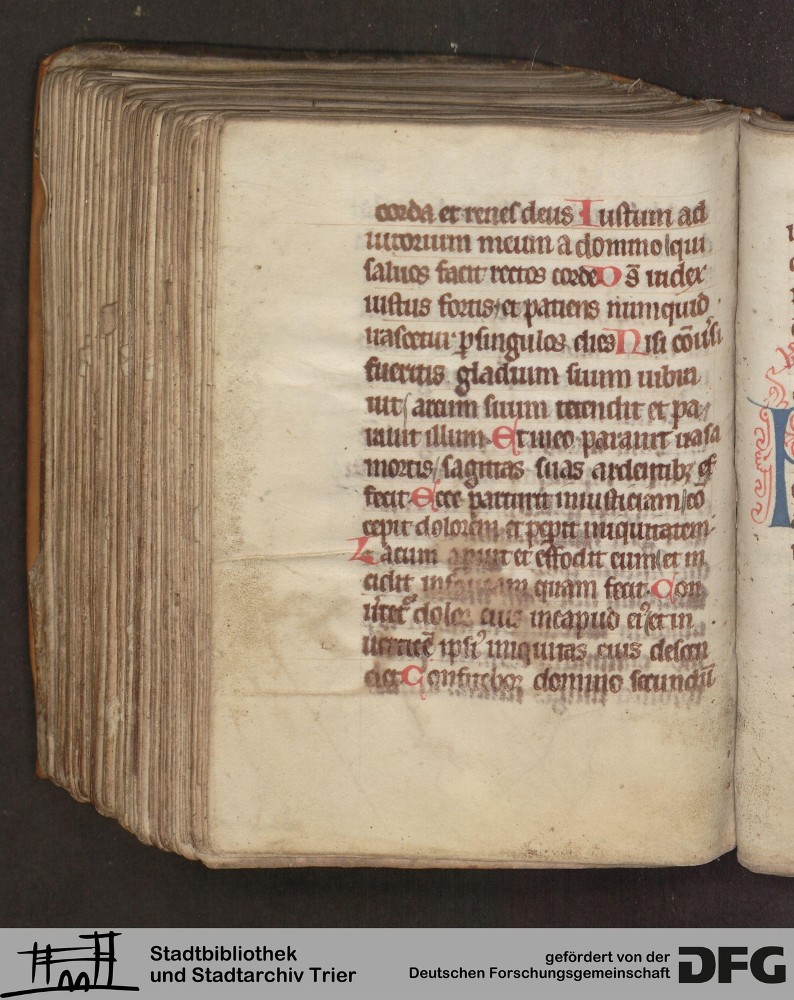 corda et renes deus Iustum ad
iutorium meum a domino qui
saluos facit rectos corde Ds̄ iudex
iustus fortis et patiens numquid
irascetur ꝑ singulos dies Nisi cōuˢi
fueritis gladium suum uibra
uit arcum suum tetendit et pa
rauit illum Et in eo parauit uasa
mortis sagittas suas ardentibꝫ ef
fecit Ecce parturit iniusticiam co
cepit dolorem et peperit iniquitatem
Lacum aperuit et effodit eum et in
cidit in quam fecit Con
dolor eius in caput eiꝰ et in
uerticē ipsiꝰ iniquitas eius descen
det Confitebor domino secundū
Stadtbibliothek
und Stadtarchiv Trier
gefördert von der
Deutschen Forschungsgemeinschaft
DFG